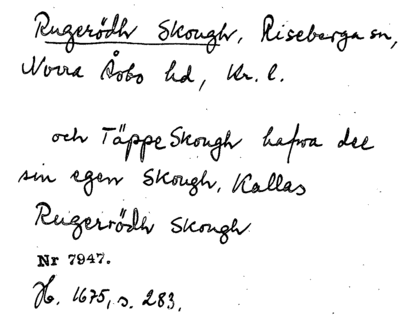 Rugerödh Skough, Riseberga sn,
Norra Åsbo hd, Kr. l.
och Täppe Skough hafwa dee
sin egen Skough, Kallas
Rugerödh Skough
Nr 7947.
H. 1675, s. 283.